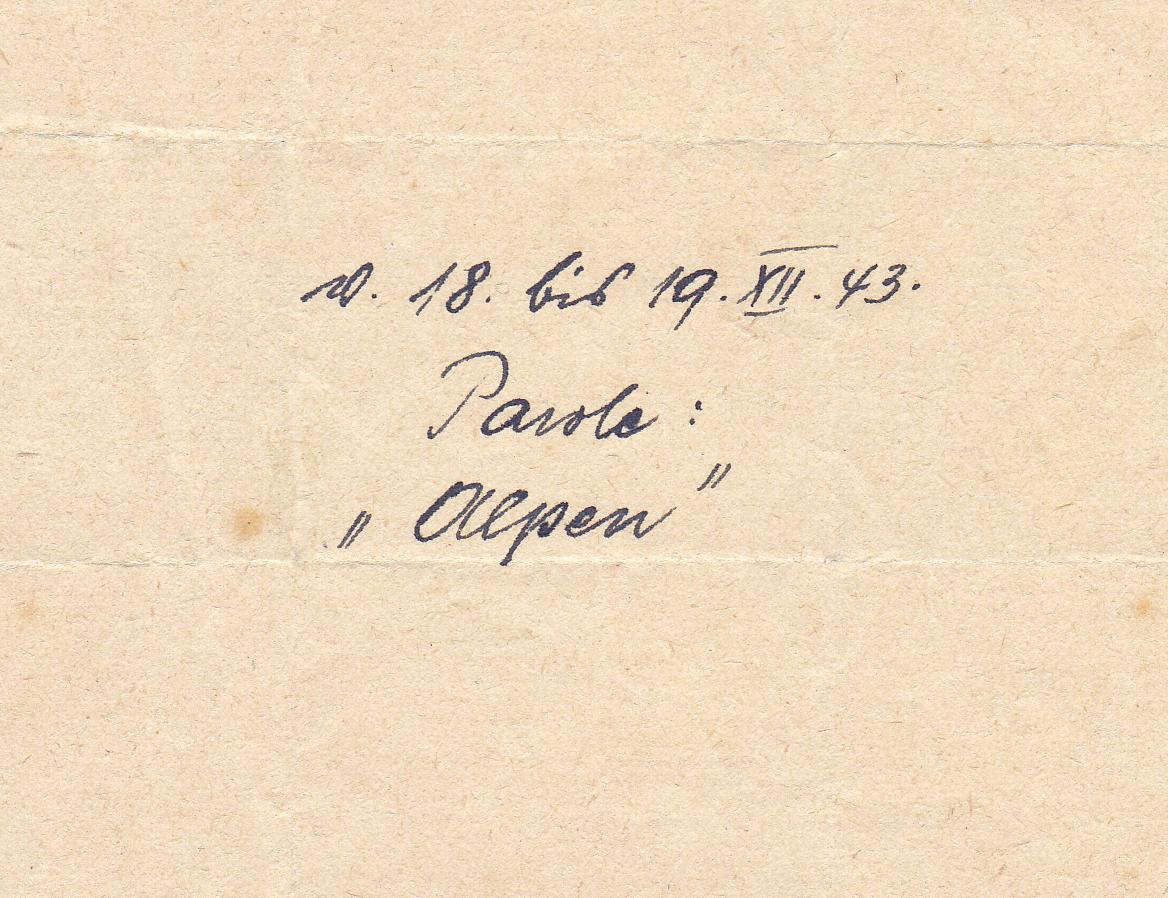 v. 18. bis 19. XII. 43.
Parole:
„Alpen"